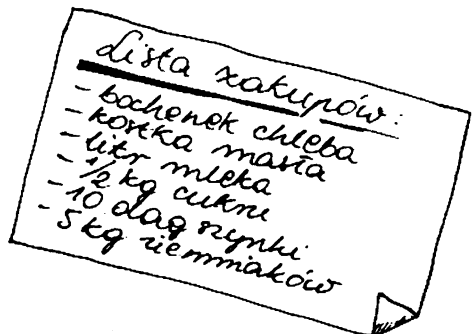 Lista zakupów:
- bochenek chleba
- kostka masła
- litr mleka
- 1/2 kg cukru
- 10 dag szynki
- 5 kg ziemniaków